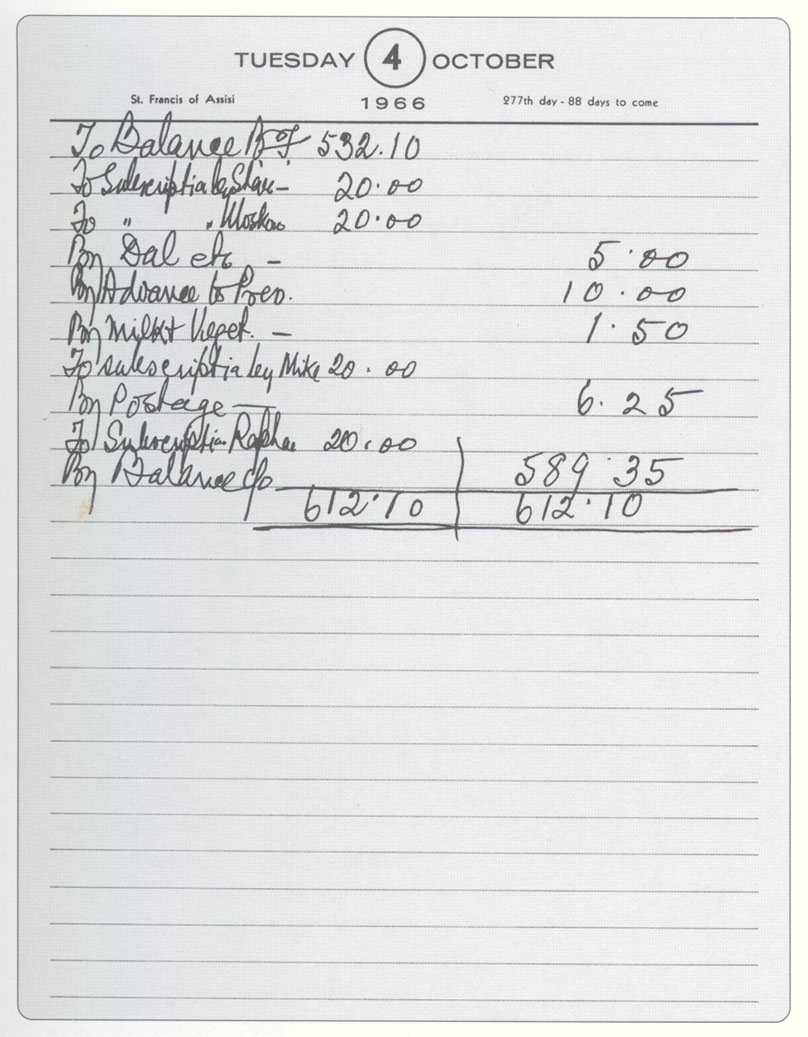 TUESDAY 4 OCTOBER
St. Francis of Assisi 1966 277th day - 88 days to come
To Balance B F 532.10
To Subscription by 20.00
To " " Moskow 20.00
By Dal etc - 5.00
By Advance to Prev. 10.00
By Milk + Veget. - 1.50
To subscription by Mike 20.00
By Postage — 6.25
To Subscription 20.00
By Balance c/o 589.35
612.10 612.10